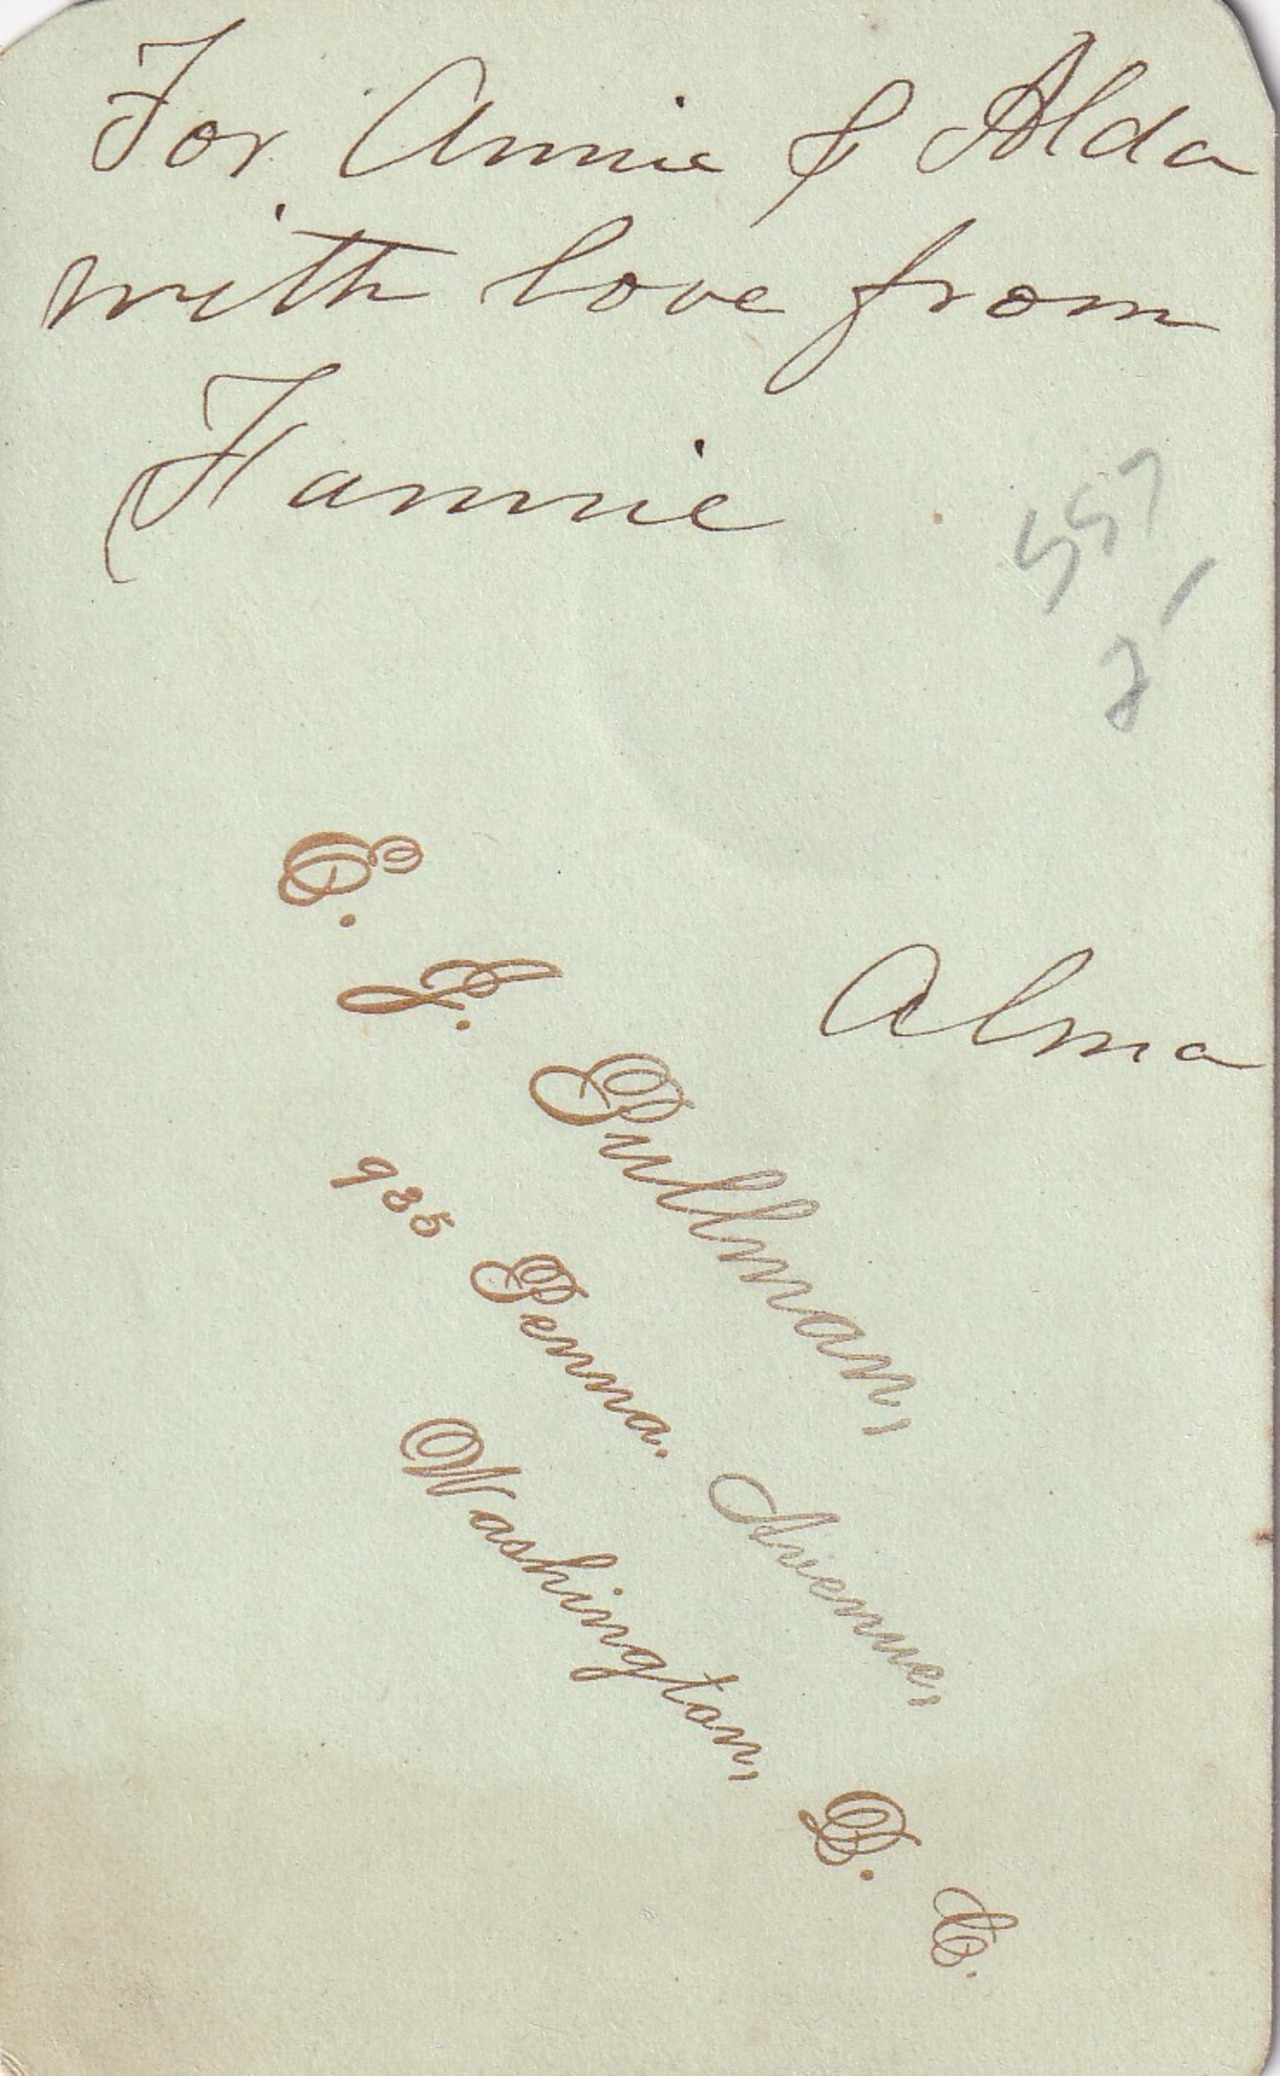 For Annie & Alda
with love from
Fannie
557
Alma
E. J. Pullman,
935 Penna. Avenue,
Washington, D. C.